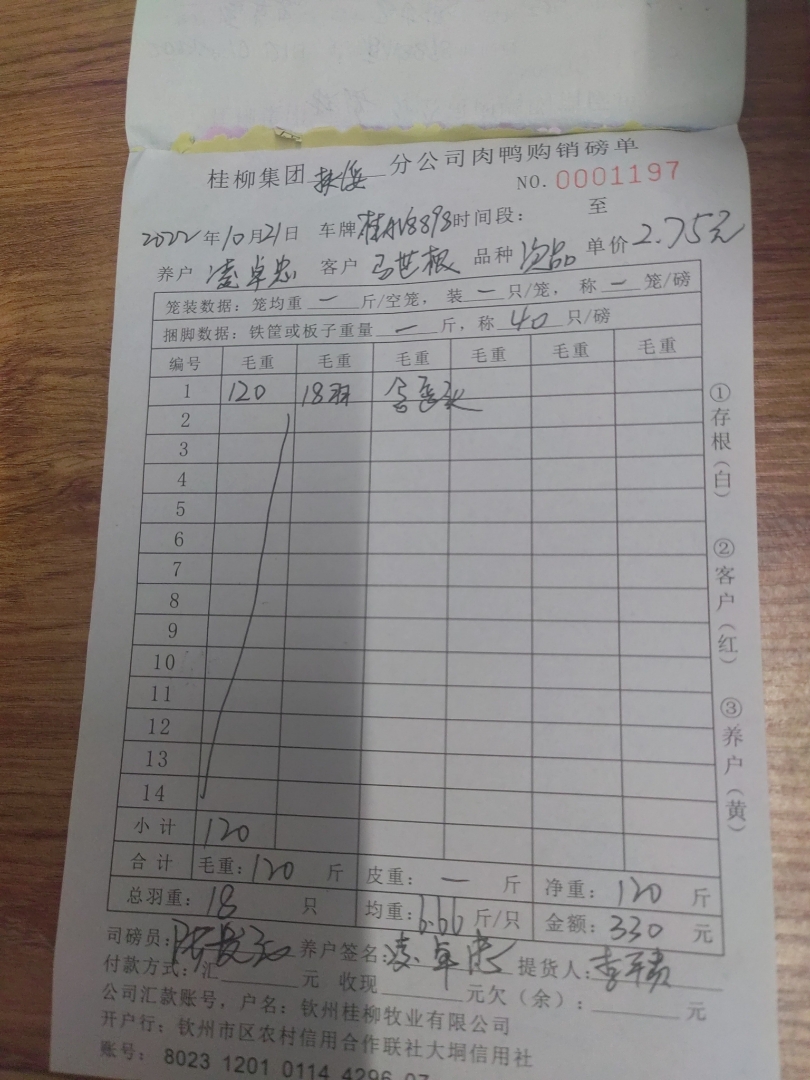 桂柳集团扶绥分公司肉鸭购销磅单
NO. 0001197
2022年10月21日 车牌桂AV8898时间段： 至
养户 凌卓忠 客户 马世根 品种 次品 单价2.75元
笼装数据：笼均重 一 斤/空笼，装 一 只/笼，称 一 笼/磅
捆脚数据：铁筐或板子重量 一 斤，称 40 只/磅
编号 毛重 毛重 毛重 毛重 毛重 毛重
1 120 18羽
2
3
4
5
6
7
8
9
10
11
12
13
14
小计 120
合计 毛重：120 斤 皮重：一 斤 净重：120 斤
总羽重：18 只 均重：6.66斤/只 金额：330 元
司磅员： 养户签名：凌卓忠 提货人：
付款方式：汇 元 收现 元欠（余）： 元
公司汇款账号，户名：钦州桂柳牧业有限公司
开户行：钦州市区农村信用合作联社大垌信用社
账号： 8023 1201 0114 4296 07
①存根（白） ②客户（红） ③养户（黄）